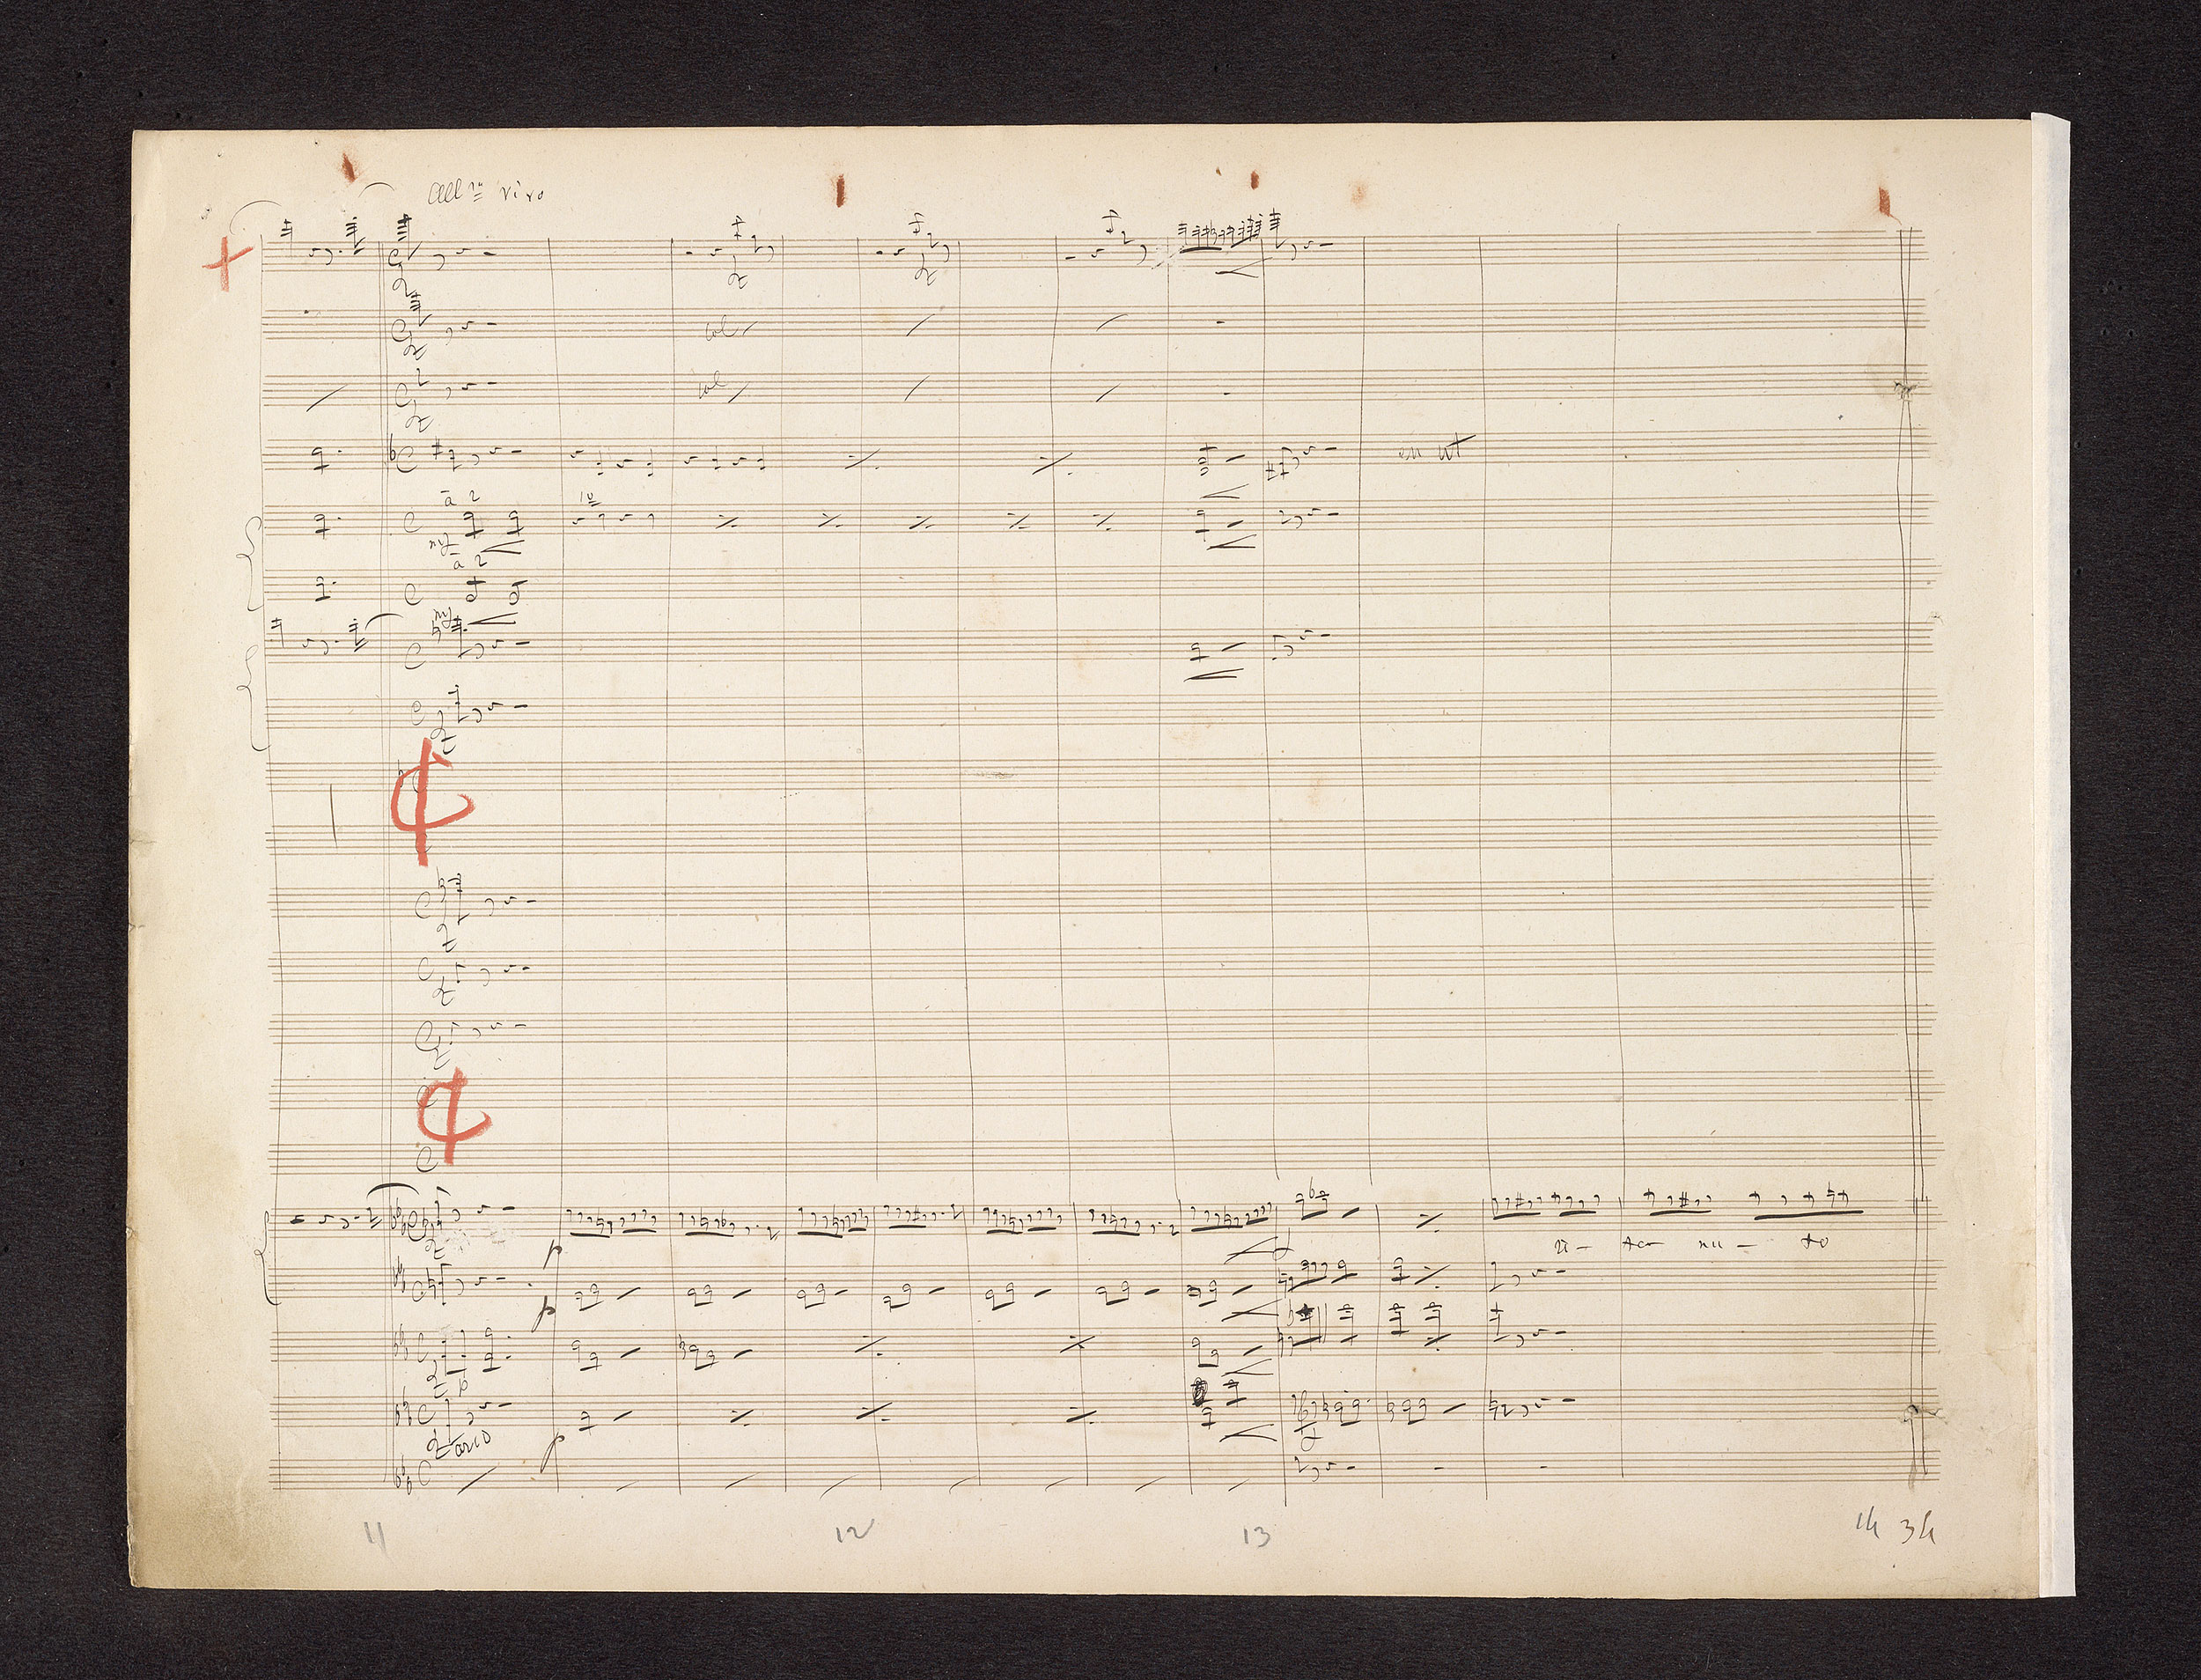 All.º vivo
col
col
en ut
à 2
1º
mf
à 2
mf
p
ri - te - nu - to
p
p
arco
p
11 12 13 14 34